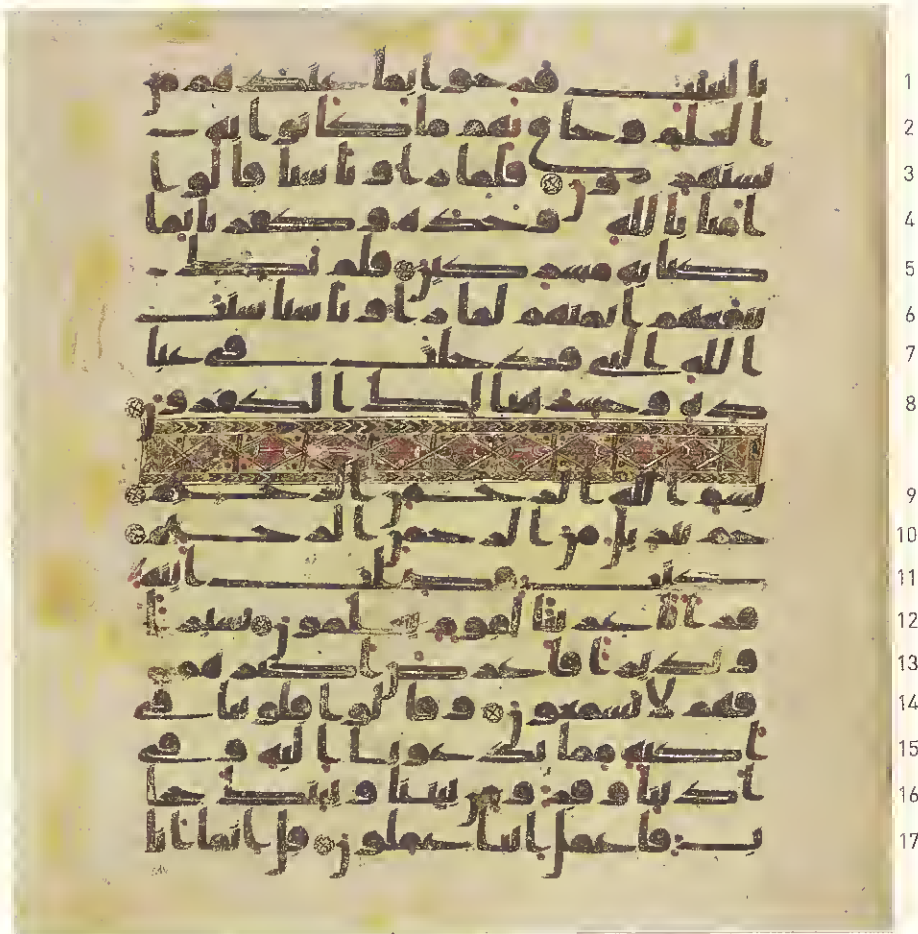 بالبينت فرحوا بما عندهم من 1
العلم وحاق بهم ما كانوا به 2
يستهزون فلما راوا باسنا قالوا 3
امنا بالله وحده وكفرنا بما 4
كنا به مشركين فلم يك 5
ينفعهم ايمنهم لما راوا باسنا سنت 6
الله التي قد خلت في عبا 7
ده وخسر هنالك الكفرون 8
بسم الله الرحمن الرحيم 9
حم تنزيل من الرحمن الرحيم 10
كتب فصلت ايته 11
قرانا عربيا لقوم يعلمون بشيرا 12
ونذيرا فاعرض اكثرهم 13
فهم لا يسمعون وقالوا قلوبنا في 14
اكنه مما تدعونا اليه وفي 15
اذننا وقر ومن بيننا وبينك حجا 16
ب فاعمل اننا عملون قل انما انا 17